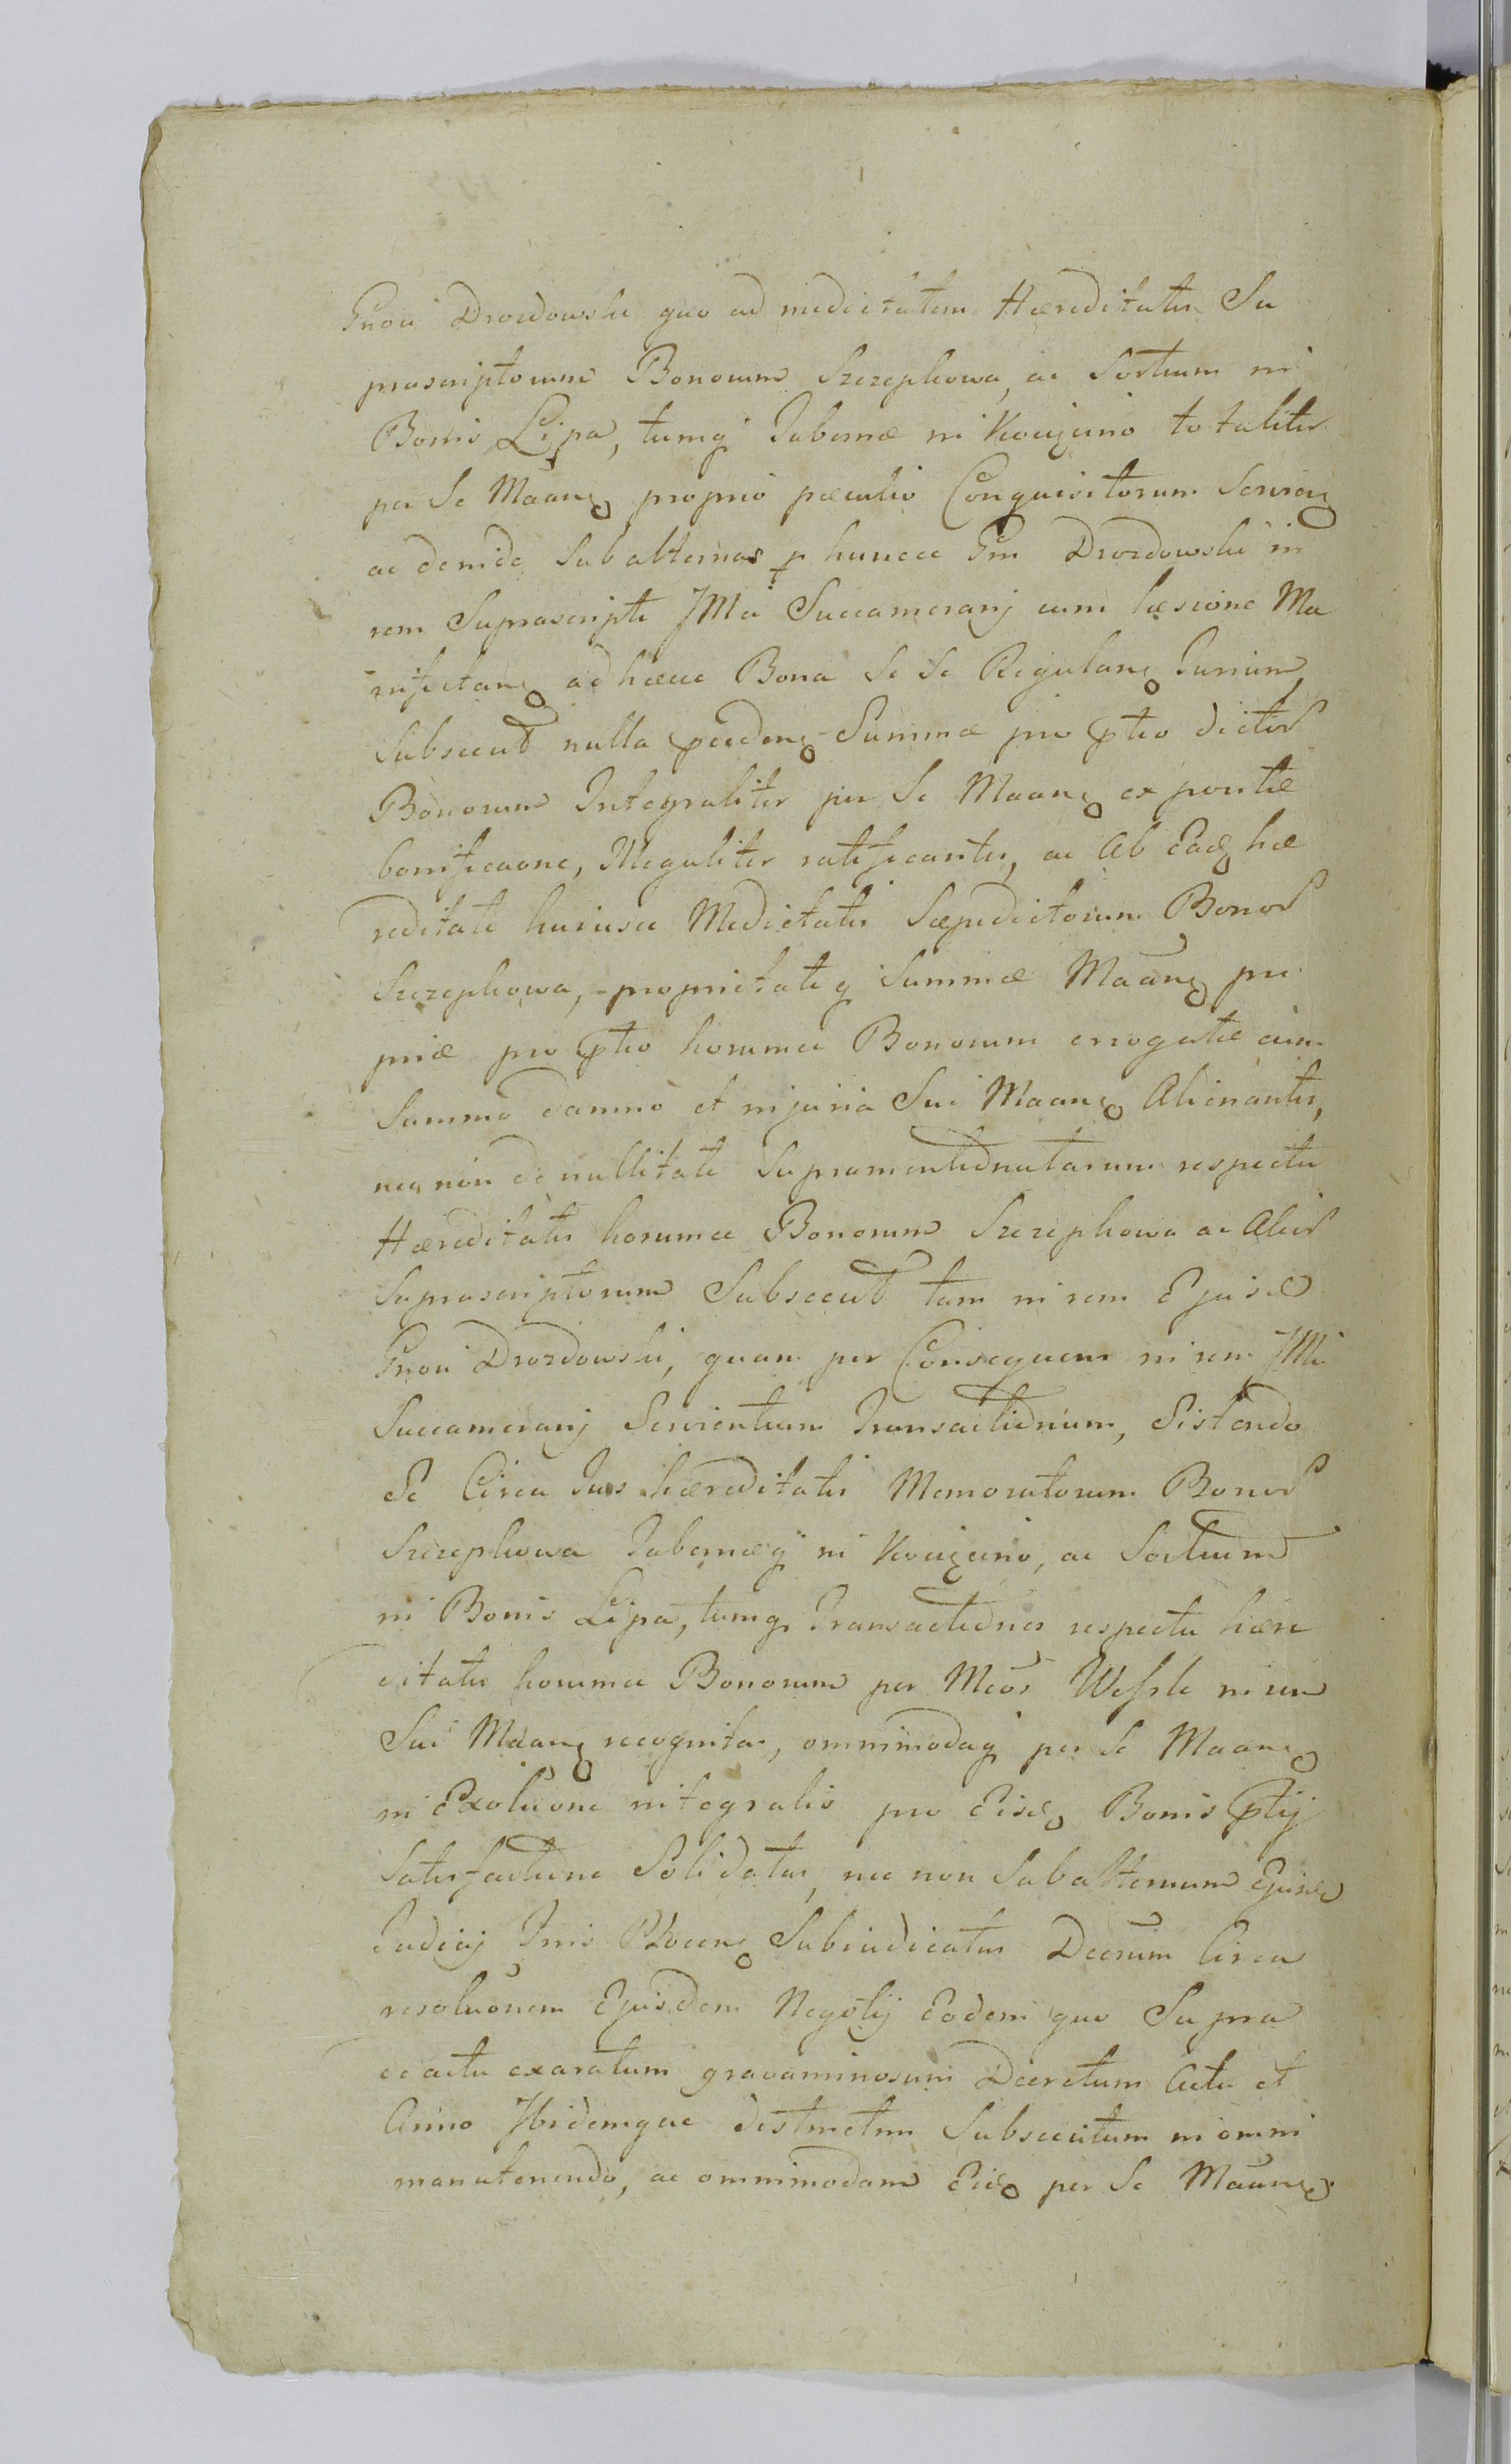 Gnoi Drozdowski quo ad medietatem Hæreditatis Su
prascriptorum Bonorum Szczepkowa, ac Sortium in
Bonis Lipa, tumq Tabernæ in totaliter
per Se Maanq proprio pæculio Conquisitorum Servien
ac deinde Subalternas p huncce Gm Drozdowski in
rem Suprascripti JMci Succamerarij cum læsione Ma
nifestanq ad hæcce Bona Se Se Regulanq Jurium
Subsecut nulla præcedenq Summæ pro ptio dictor
Bonorum Integraliter per Se Maanq expositæ
bonificaone, Illegaliter ratificantis, ac Ab Eadq hæ
reditate huiusce Medietatis Sæpedictorum Bonor
Szczepkowa, proprietateq Summæ Maanq pro
priæ pro ptio horumce Bonorum errogatæ cum
Summo damno et injuria Sui Maanq Alienantis,
necnon de nullitate Supramentionatarum respectu
Hæreditatis horumce Bonorum Szczepkowa ac Alior
Suprascriptorum Subsecut tam in rem Ejusd
Gnoi Drozdowski, quam per Consequens in rem JMci
Succamerarij Servientium Transactionum, Sistendo
Se Circa Jus hæreditatis Memoratorum Bonor
Szczepkowa Tabernæq in ac Sortium
in Bonis Lipa, tumq Transactiones respectu hære
ditatis horumce Bonorum per Mcos Wessle in rem
Sui Maanq recognitas, omnimodaq per Se Maanq
in Exoluone integralis pro Eisdq Bonis ptij
Satisfactione Solidatas, nec non Subalternum Ejusd
Judicij Tris Plocenq Subiudicatus Decrum Circa
resoluonem Ejusdem Negotij Eodem quo Supra
de actu exaratum gravaminosum Decretum Actu et
Anno Ibidemque distinctim Subsecutum in omni
manutenendo, ac omnimodam Eidq per Se Maanq